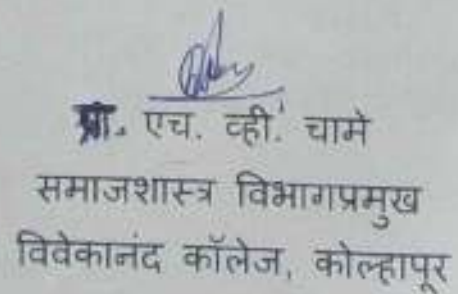 प्रा. एच. व्ही. चामे
समाजशास्त्र विभागप्रमुख
विवेकानंद कॉलेज, कोल्हापूर